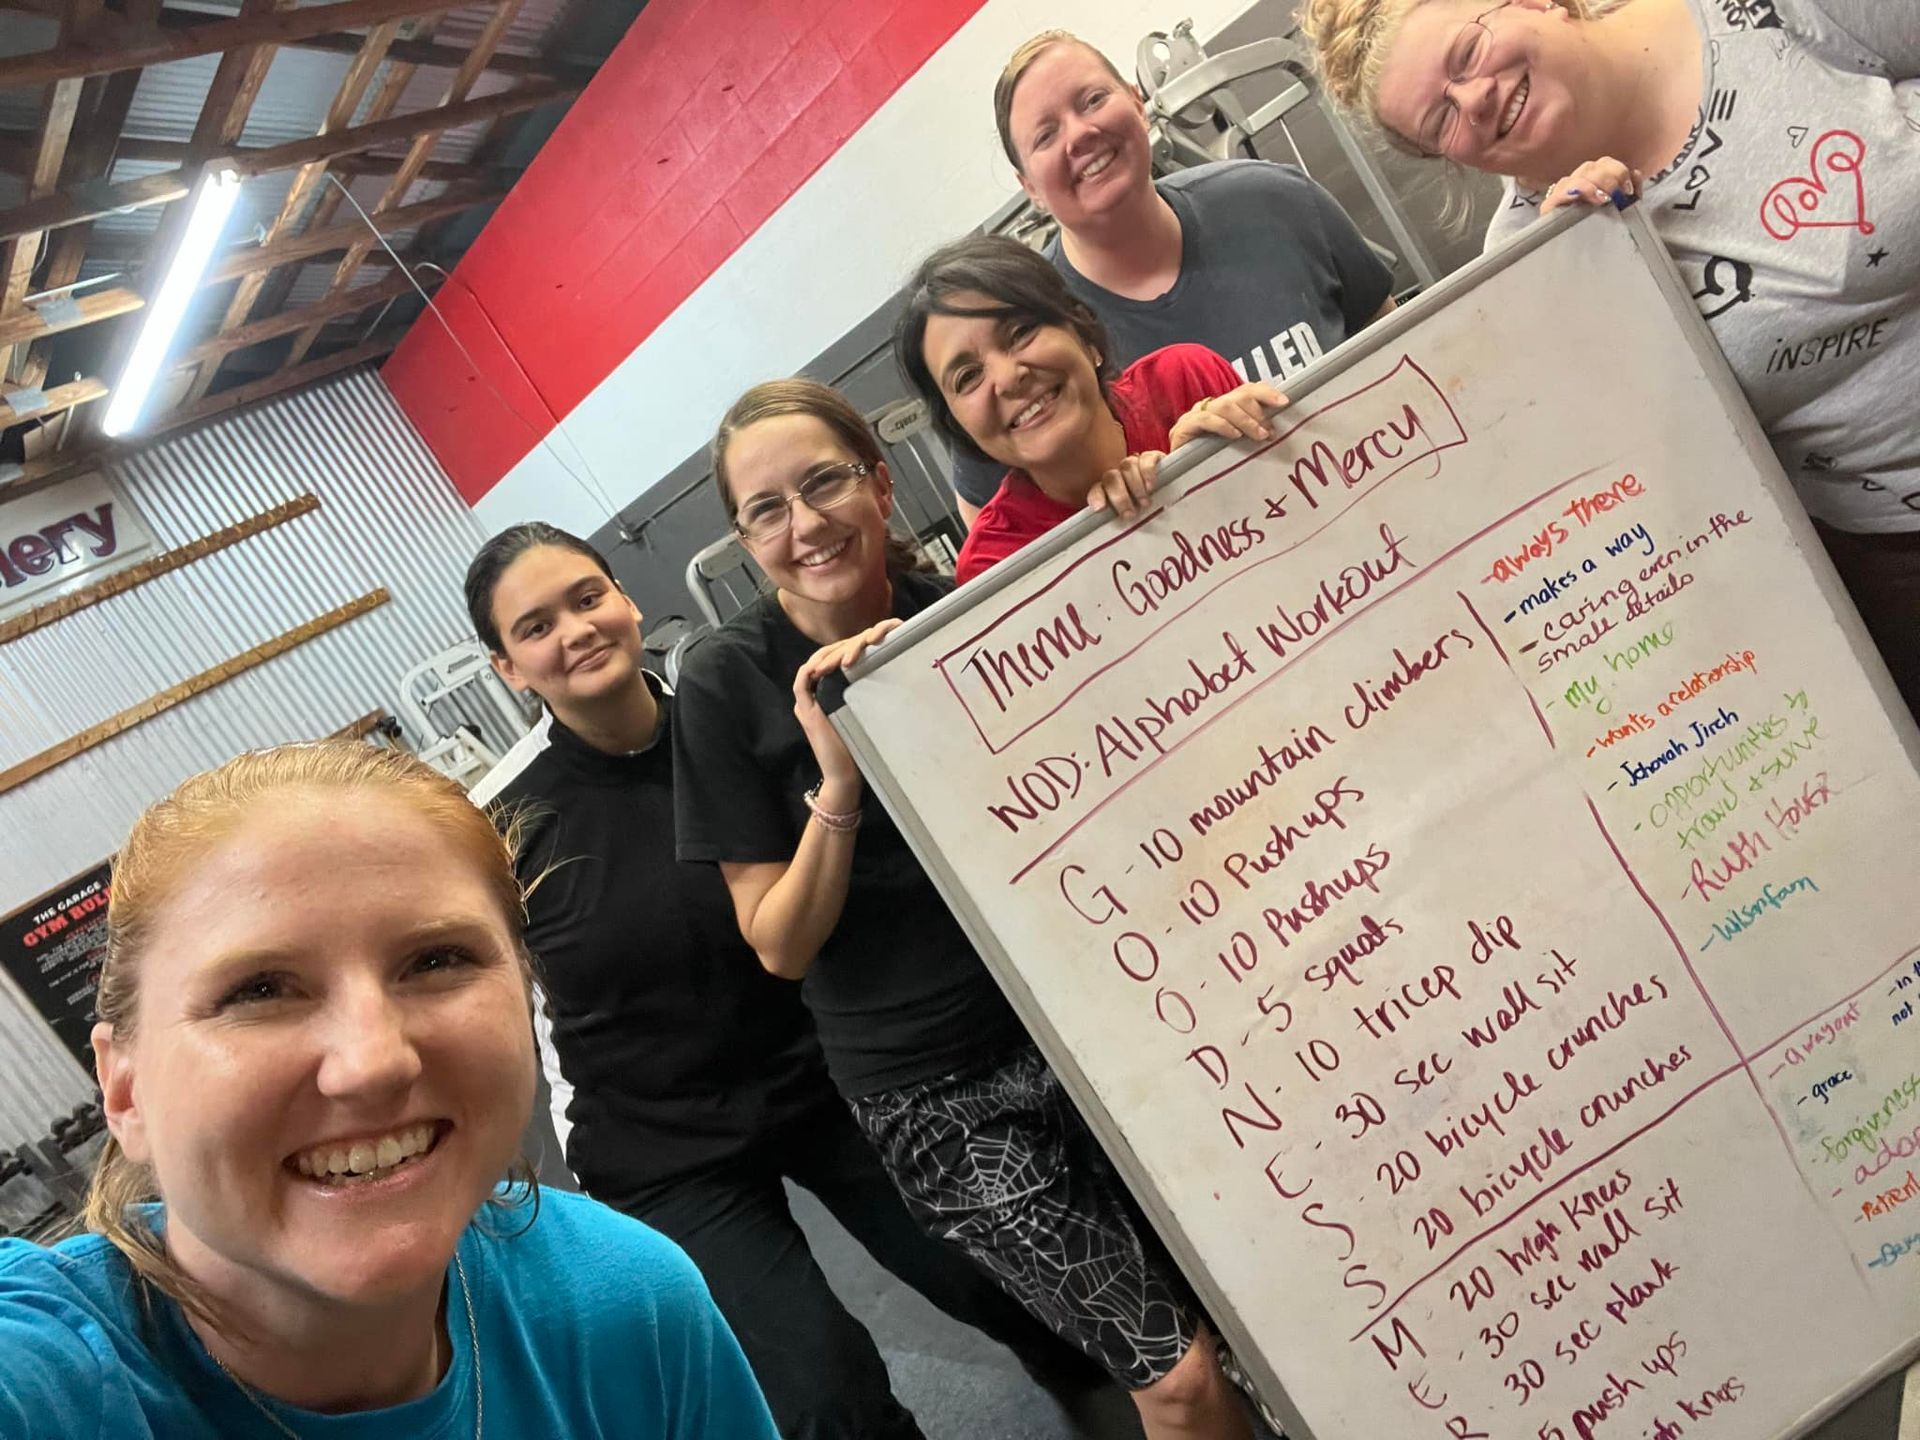 Theme: Goodness & Mercy
WOD: Alphabet Workout
G - 10 mountain climbers
O - 10 Pushups
O - 10 Pushups
D - 5 squats
N - 10 tricep dip
E - 30 sec wall sit
S - 20 bicycle crunches
S 20 bicycle crunches
M - 20 high knees
E - 30 sec wall sit
R 30 sec plank
5 push ups
knees
- always there
- makes a way
- caring even in the
small details
- my home
- wants a relationship
- Jehovah Jirch
- opportunities to
travel & serve
- Ruth
- Wilson fam
- a way out
- in
not
- grace
- forgiveness
- Patient
LOVE
love
INSPIRE
LLED
THE GARAGE
GYM RUL